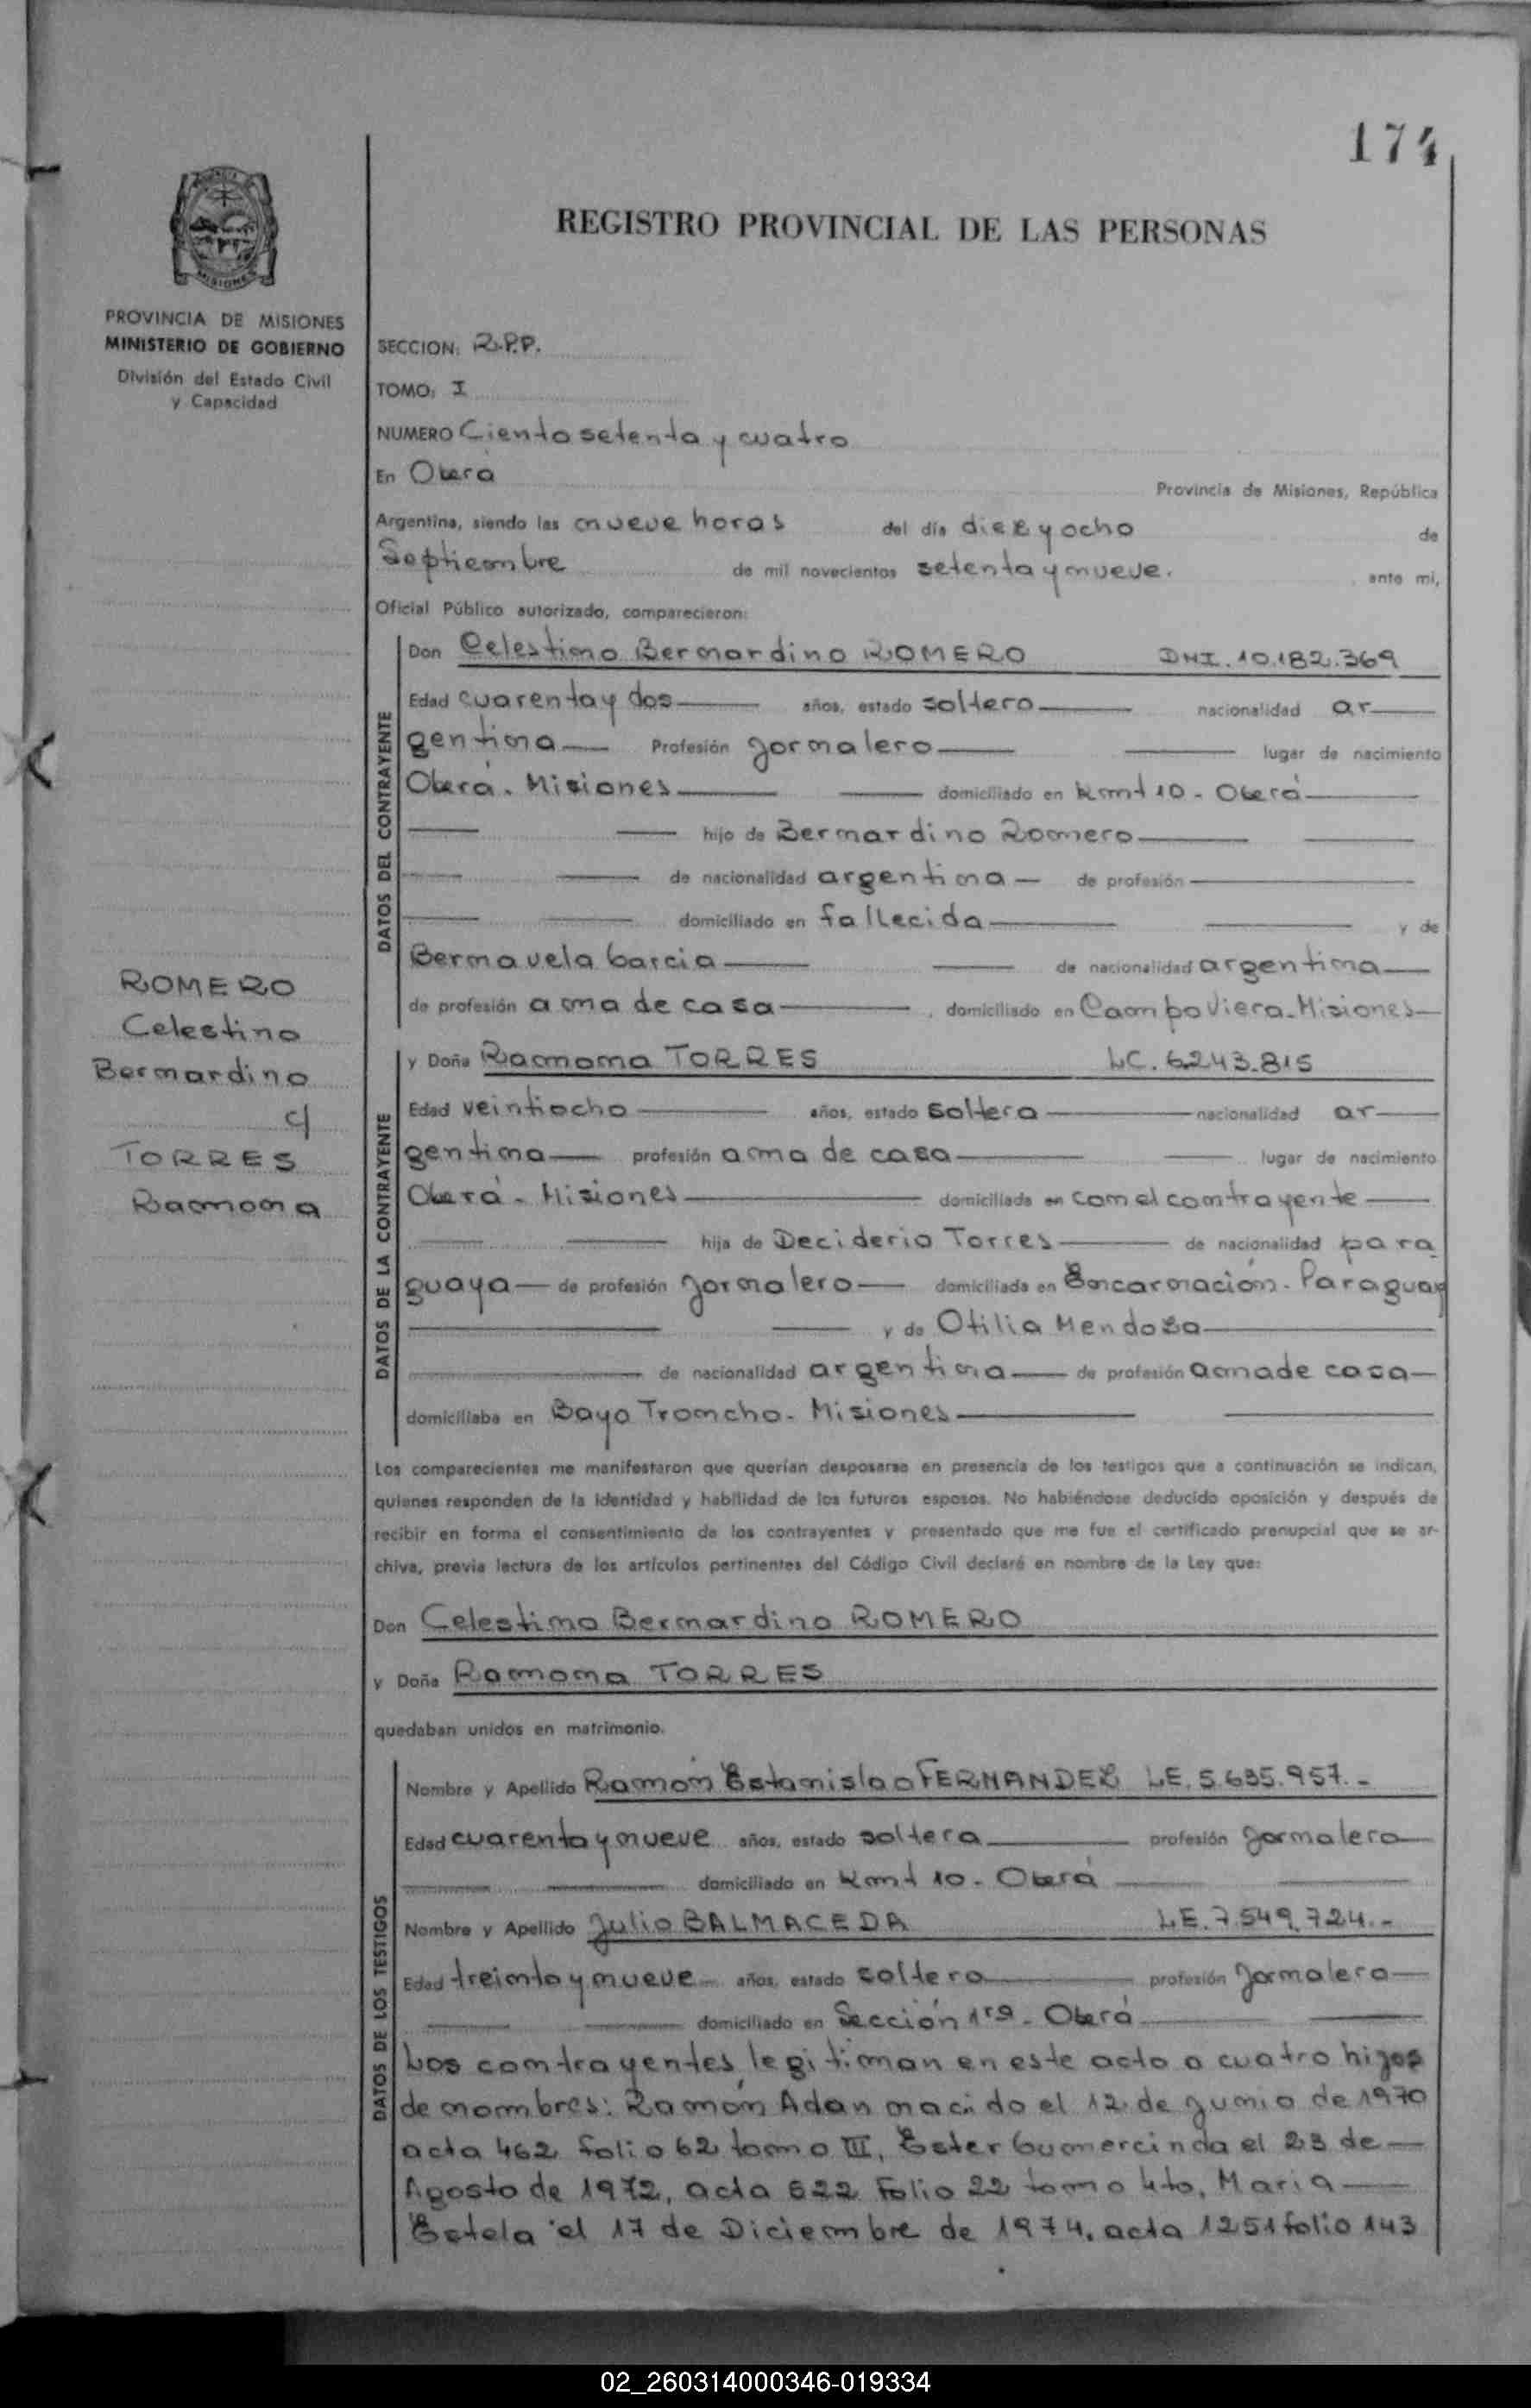 174
MISIONES
REGISTRO PROVINCIAL DE LAS PERSONAS
PROVINCIA DE MISIONES
MINISTERIO DE GOBIERNO
División del Estado Civil
y Capacidad
SECCION: R.P.P.
TOMO: I
NUMERO Ciento setenta y cuatro
En Oberá Provincia de Misiones, República
Argentina, siendo las nueve horas del día diez y ocho de
Septiembre de mil novecientos setenta y nueve. ante mi,
Oficial Público autorizado, comparecieron:
DATOS DEL CONTRAYENTE
Don Celestino Bernardino ROMERO DNI. 10.182.369
Edad cuarenta y dos años, estado soltero nacionalidad ar
gentina Profesión Jornalero lugar de nacimiento
Oberá. Misiones domiciliado en Kmt 10 - Oberá
hijo de Bernardino Romero
de nacionalidad argentina de profesión
domiciliado en fallecida y de
Bernavela Garcia de nacionalidad argentina
de profesión ama de casa, domiciliado en Campo Viera. Misiones
ROMERO
Celestino
Bernardino
c/
TORRES
Ramona
DATOS DE LA CONTRAYENTE
y Doña Ramona TORRES LC. 6.243.815
Edad veintiocho años, estado soltera nacionalidad ar
gentina profesión ama de casa lugar de nacimiento
Oberá - Misiones domiciliada en con el contrayente
hija de Deciderio Torres de nacionalidad para
guaya de profesión Jornalero domiciliada en Encarnación - Paraguay
y de Otilia Mendoza
de nacionalidad argentina de profesión ama de casa
domiciliaba en Bayo Troncho - Misiones
Los comparecientes me manifestaron que querían desposarse en presencia de los testigos que a continuación se indican,
quienes responden de la identidad y habilidad de los futuros esposos. No habiéndose deducido oposición y después de
recibir en forma el consentimiento de los contrayentes y presentado que me fue el certificado prenupcial que se ar-
chiva, previa lectura de los artículos pertinentes del Código Civil declaré en nombre de la Ley que:
Don Celestino Bernardino ROMERO
y Doña Ramona TORRES
quedaban unidos en matrimonio.
DATOS DE LOS TESTIGOS
Nombre y Apellido Ramón Estanislao FERNANDEZ LE. 5.635.957.-
Edad cuarenta y nueve años, estado soltera profesión Jornalero
domiciliado en Kmt 10 - Oberá
Nombre y Apellido Julio BALMACEDA LE. 7.549.724.-
Edad treinta y nueve años, estado soltero profesión Jornalero
domiciliado en Sección 1ra - Oberá
Los contrayentes legitiman en este acto a cuatro hijos
de nombres: Ramón Adan nacido el 12 de Junio de 1970
acta 462 folio 62 tomo III, Ester Gumercinda el 23 de
Agosto de 1972, acta 622 Folio 22 tomo 4to, Maria
Estela el 17 de Diciembre de 1974, acta 1251 folio 143
02_260314000346-019334